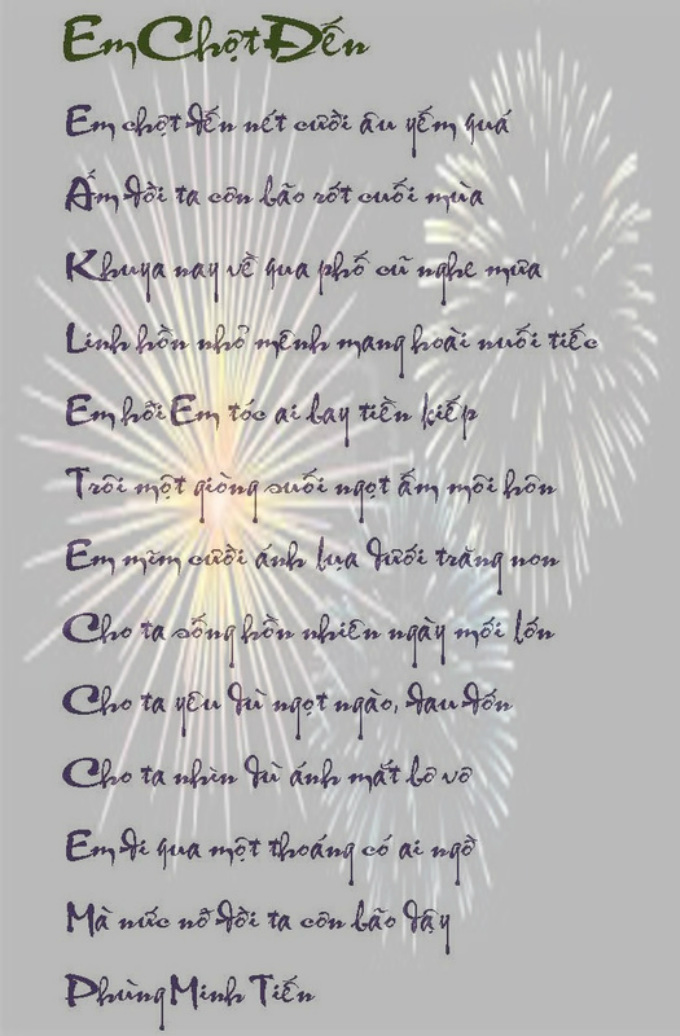 Em Chợt Đến
Em chợt đến nét cười âu yếm quá
Ấm đời ta cơn bão rớt cuối mùa
Khuya nay về qua phố cũ nghe mưa
Linh hồn nhỏ mênh mang hoài nuối tiếc
Em hỡi Em tóc ai bay tiền kiếp
Trôi một giòng suối ngọt ấm môi hôn
Em mĩm cười ánh lụa dưới trăng non
Cho ta sống hồn nhiên ngày mới lớn
Cho ta yêu dù ngọt ngào, đau đớn
Cho ta nhìn dù ánh mắt bơ vơ
Em đi qua một thoáng có ai ngờ
Mà nức nở đời ta cơn bão dậy
Phùng Minh Tiến